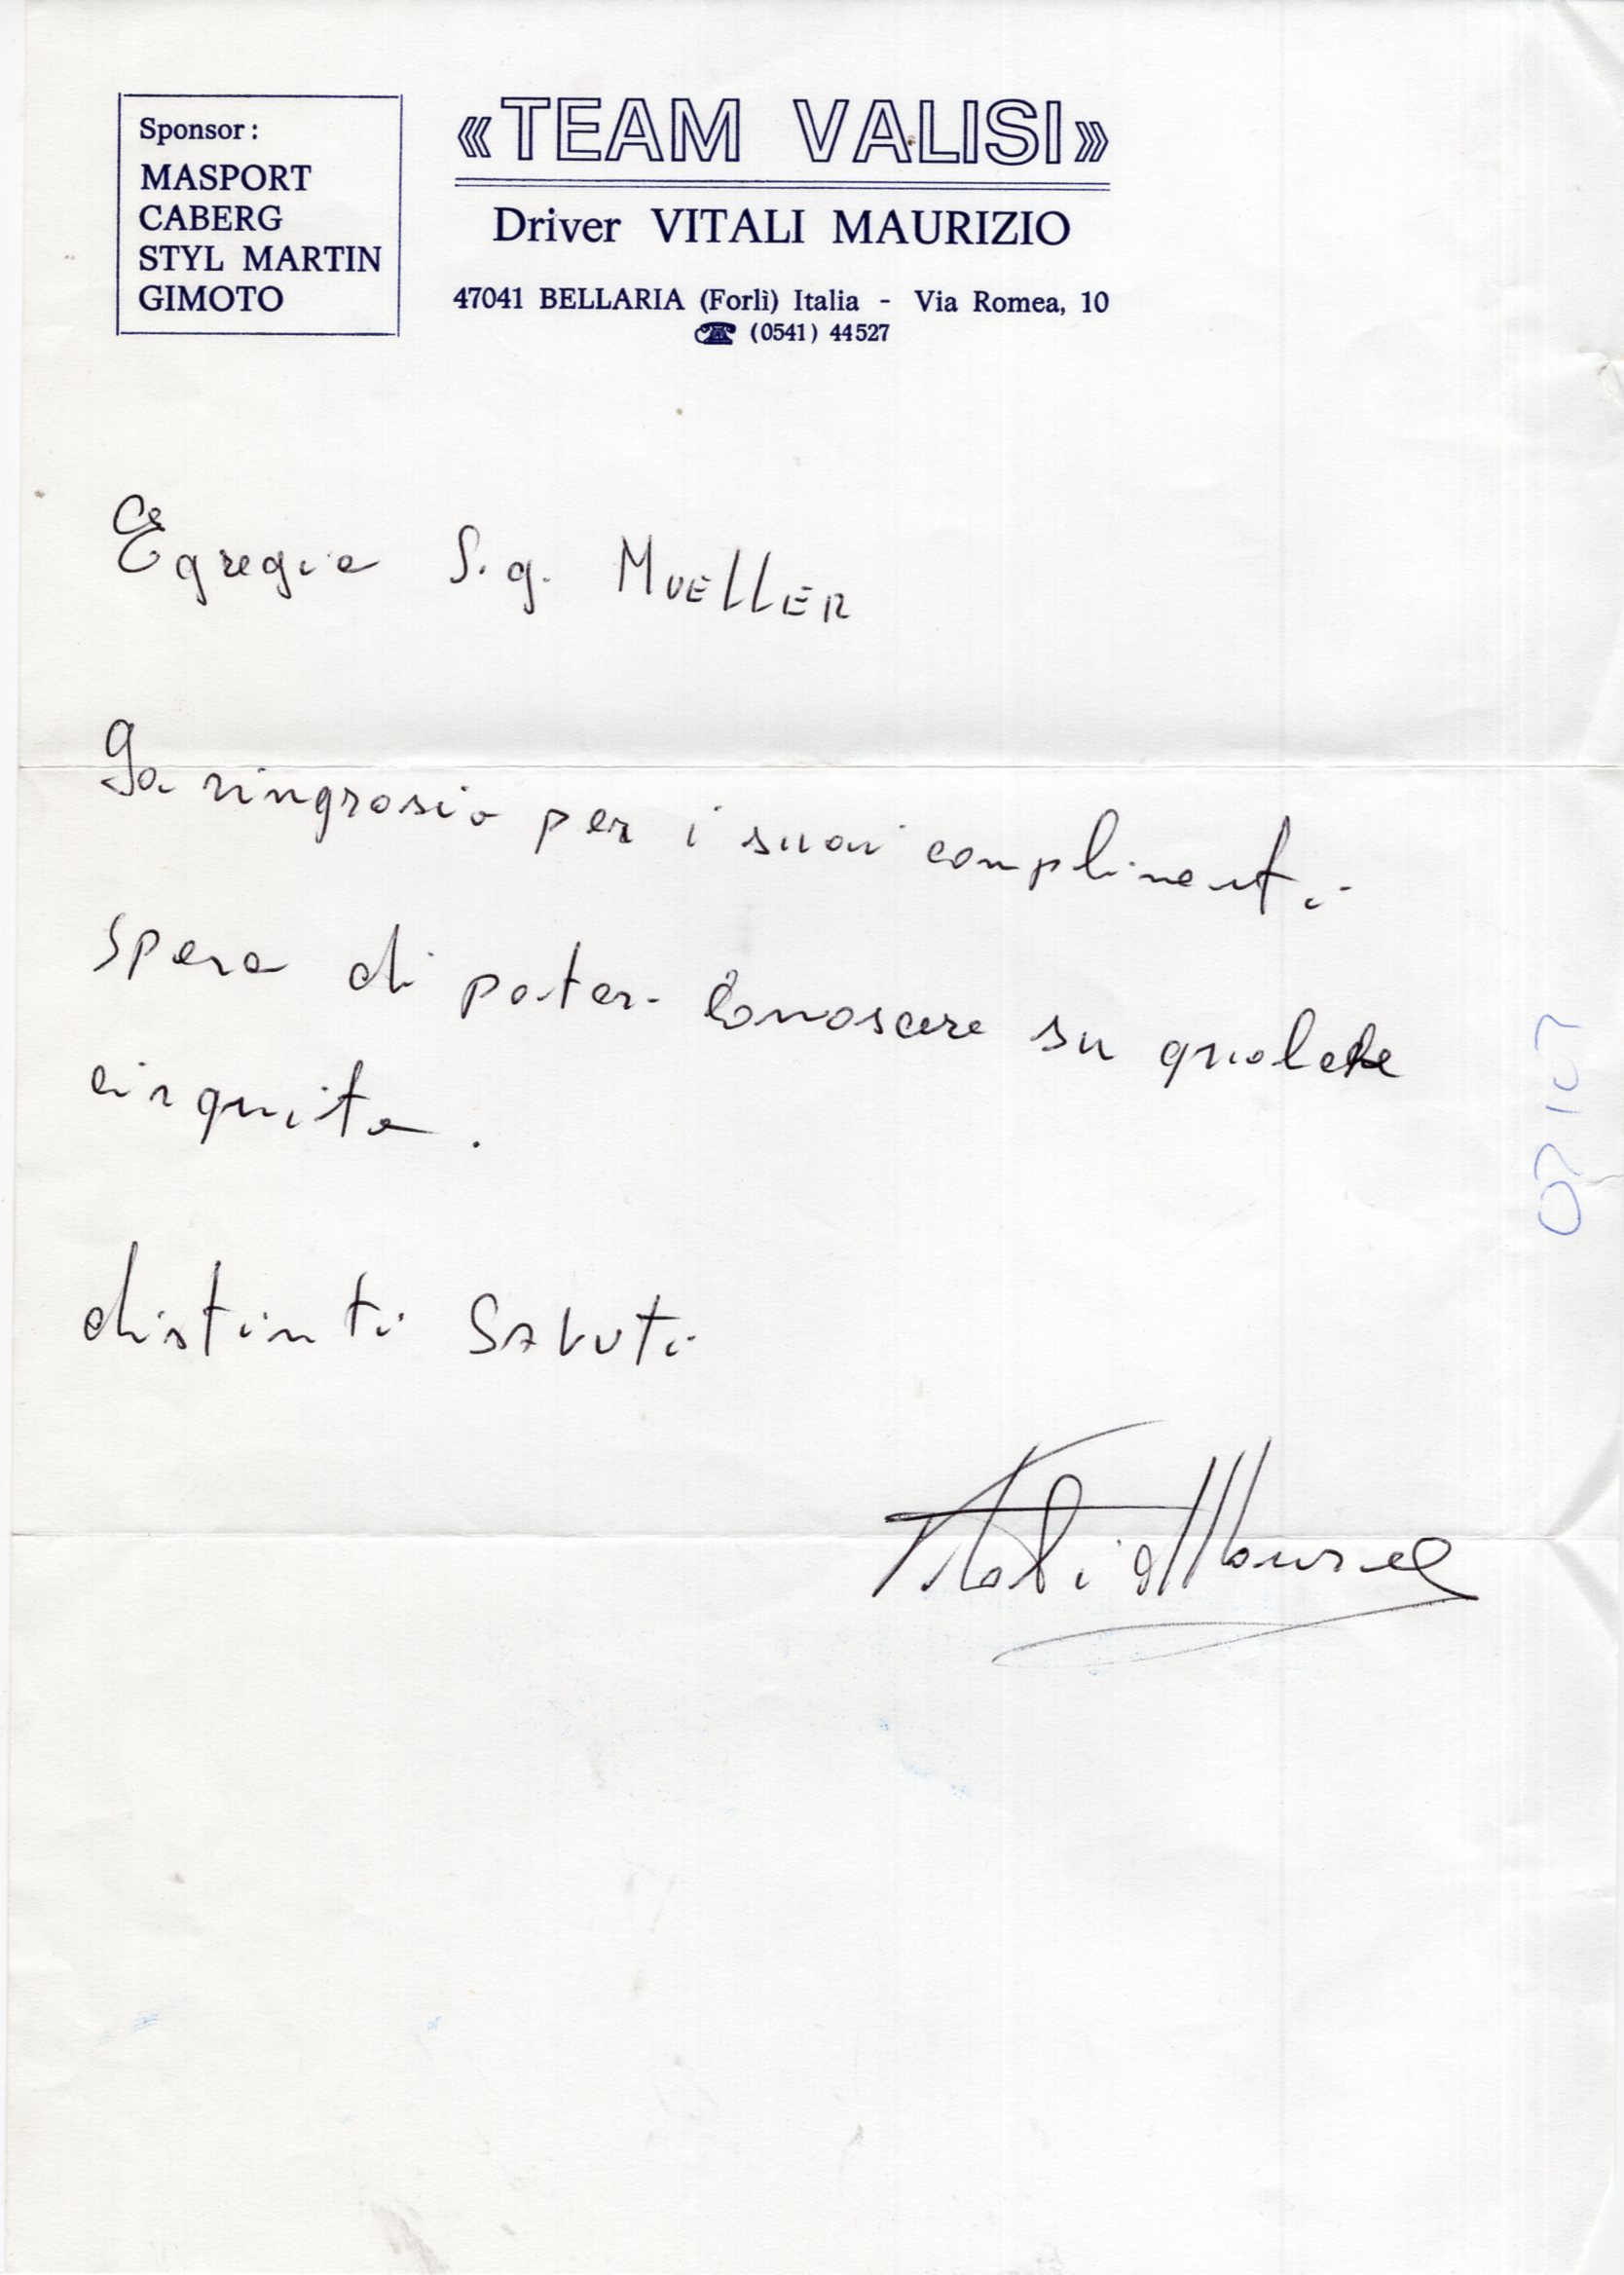 Sponsor :
MASPORT
CABERG
STYL MARTIN
GIMOTO
«TEAM VALISI»
Driver VITALI MAURIZIO
47041 BELLARIA (Forlì) Italia - Via Romea, 10
☎ (0541) 44527
Egregio S.g. MUELLER
La ringrasio per i suoi complimenti
spero di poter conoscere su qualche
cirquito.
distinti SALUTI
Vitali Maurizio